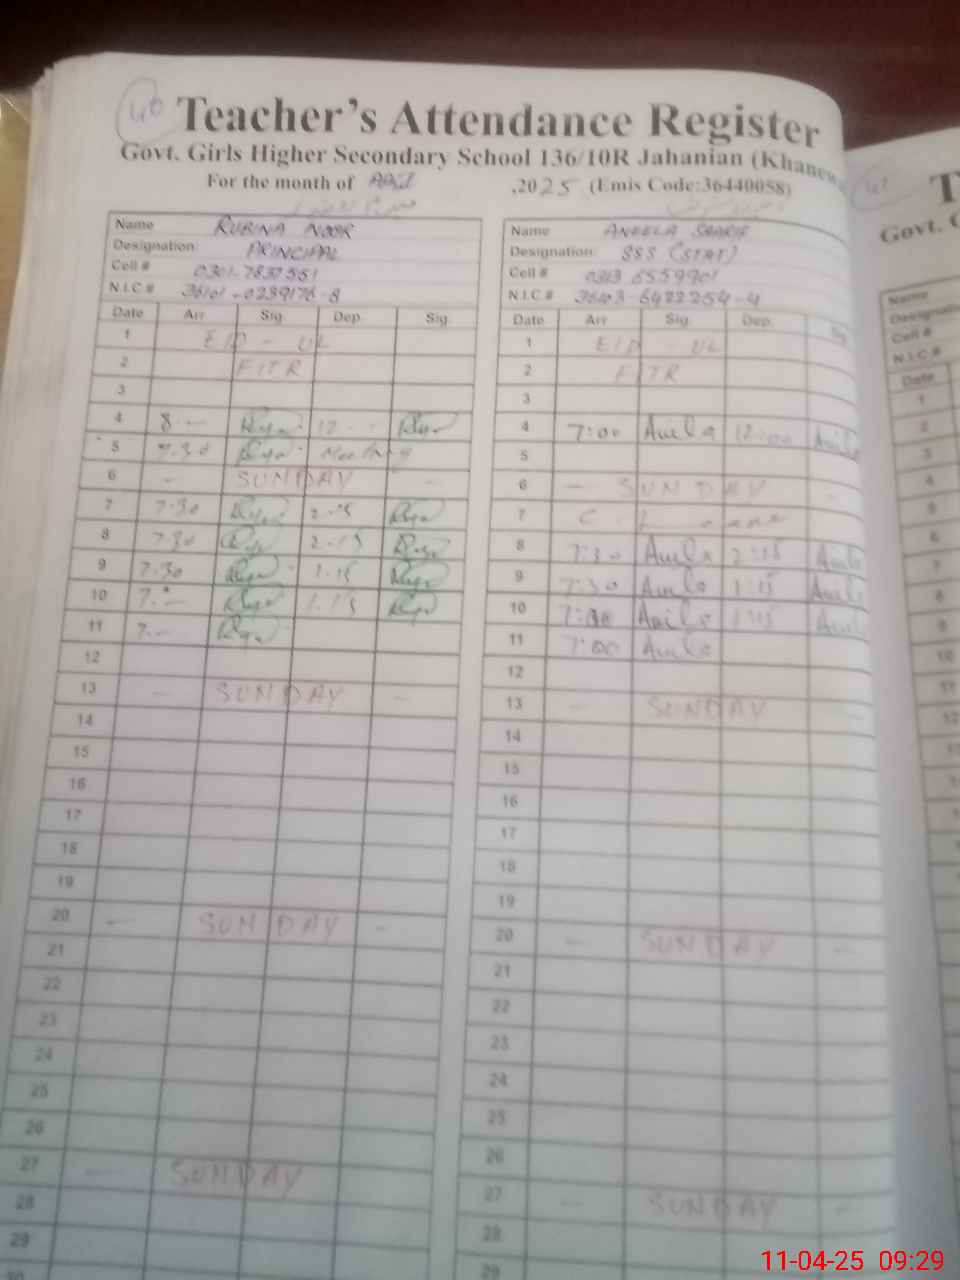 40
Teacher's Attendance Register
Govt. Girls Higher Secondary School 136/10R Jahanian (Khanewa
For the month of April ,2025 (Emis Code:36440058)
Name RUBINA NOOR
Designation: PRINCIPAL
Cell #
N.I.C.# 36101-0239176-8
Date Arr Sig. Dep. Sig.
1 EID - UL
2 FITR
3
4 8.— 12
5 7.30 Meeting
6 - SUNDAY -
7 7.30 2.15
8 7.30 2.15
9 7.30 1.15
10 7.— 1.15
11 7.—
12
13 - SUNDAY -
14
15
16
17
18
19
20 - SUNDAY -
21
22
23
24
25
26
27 - SUNDAY
28
29
30
Name ANEELA SHARIF
Designation: SSS (STAT)
Cell # 0313 6559901
N.I.C.# 36103-6422254-4
Date Arr Sig. Dep. Sig
1 EID UL
2 FITR
3
4 7:00 Anila 12:00 Anila
5
6 - SUNDAY -
7 C.L
8 7:30 Anila 2:15 Anila
9 7:30 Anila 1:15 Anila
10 7:00 Anila 1:15 Anila
11 7:00 Anila
12
13 - SUNDAY -
14
15
16
17
18
19
20 - SUNDAY -
21
22
23
24
25
26
27 - SUNDAY -
28
29
41
T
Govt. G
Name
Designation
Cell #
N.I.C.#
Date
1
2
3
4
5
6
7
8
9
10
11
12
13
11-04-25 09:29